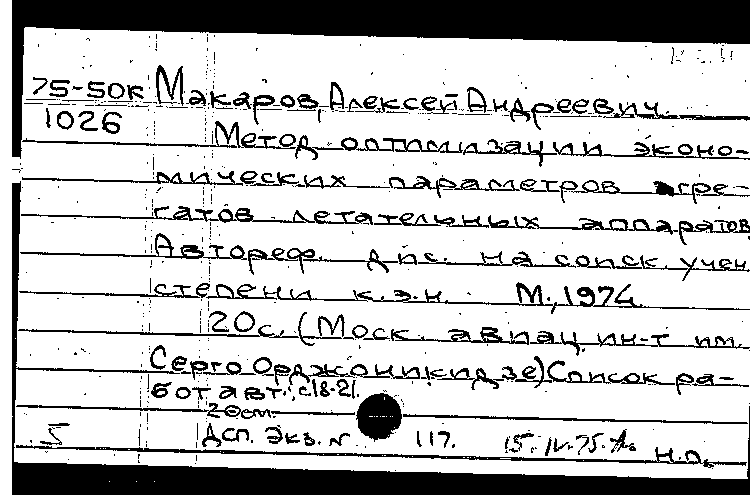 75-50к Макаров, Алексей Андреевич.
1026 Метод оптимизации эконо-
мических параметров агре-
гатов летательных аппаратов
Автореф. дис. на соиск. учен
степени к.э.н. М., 1974
20с. (Моск. авиац. ин-т им.
Серго Орджоникидзе) Список ра-
бот авт.: с.18-21.
5 Дсп. Экз. № 117. 15.IV.75. Н.П.